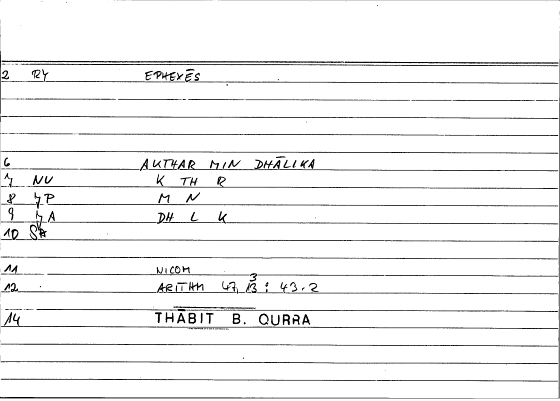 2 RY EPHEXĒS
6 AKTHAR MIN DHĀLIKA
7 NU K TH R
8 7P M N
9 7A DH L K
10
11 NICOM
12 ARITHM 47, 3 : 43.2
14 THĀBIT B. QURRA